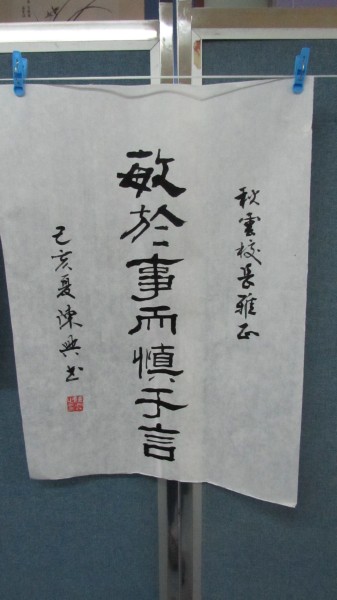 秋雲校長雅正
敏於事而慎于言
己亥夏陳興书